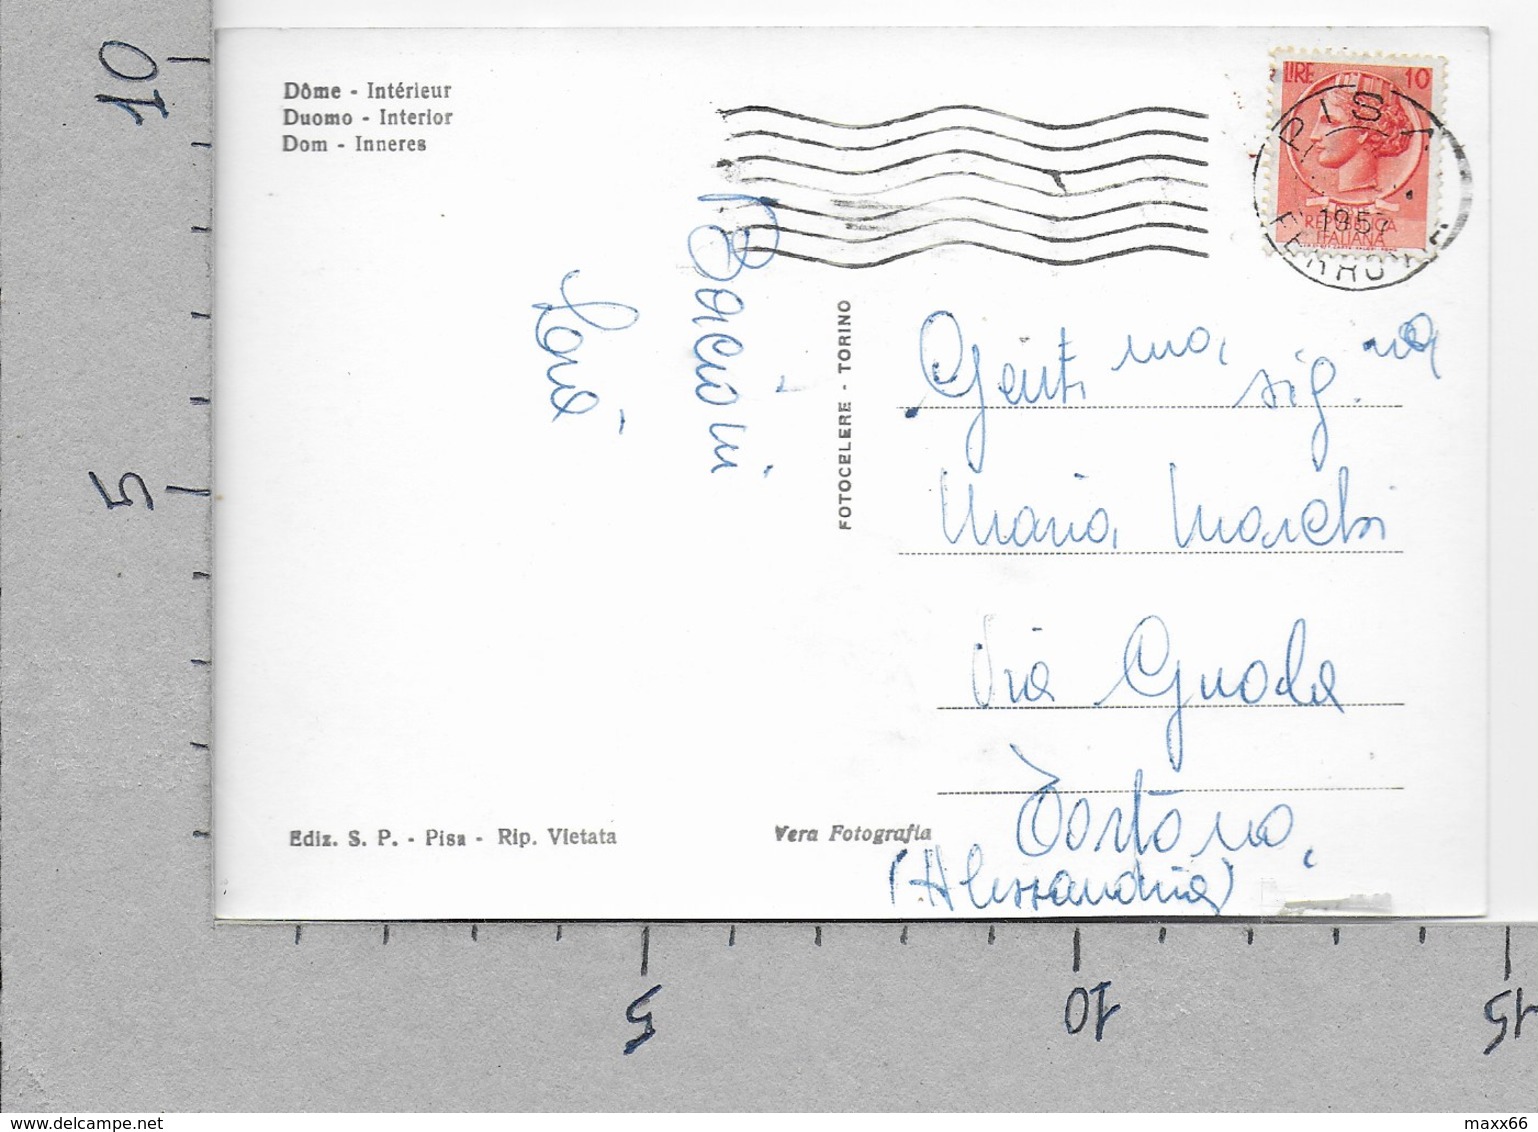 Dôme - Intérieur
Duomo - Interior
Dom - Inneres
LIRE 10
PISA
1957
REPUBBLICA
ITALIANA
FERROVIA
Bacioni
FOTOCELERE - TORINO
Gent.ma sig.na
Maria Marchi
Via
Tortona
(Alessandria)
Ediz. S. P. - Pisa - Rip. Vietata
Vera Fotografia
10
5
5
10
15
delcampe.net
maxx66